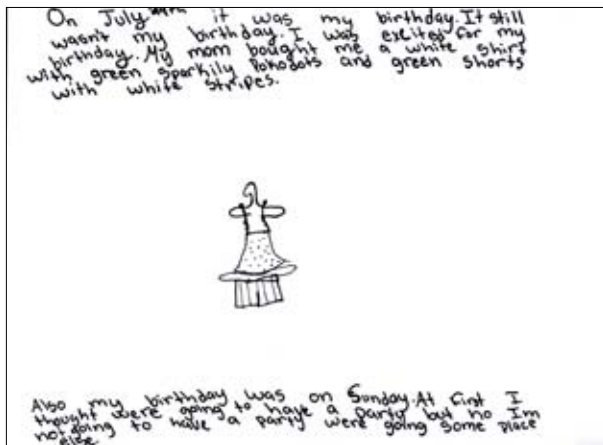 On July it was my birthday. It still
wasn't my birthday. I was excited for my
birthday. My mom bought me a white shirt
with green sparkily Pokodots and green shorts
with white stripes.
Also my birthday was on Sunday. At first I
thought were going to have a party but no Im
not going to have a party were going some place
else